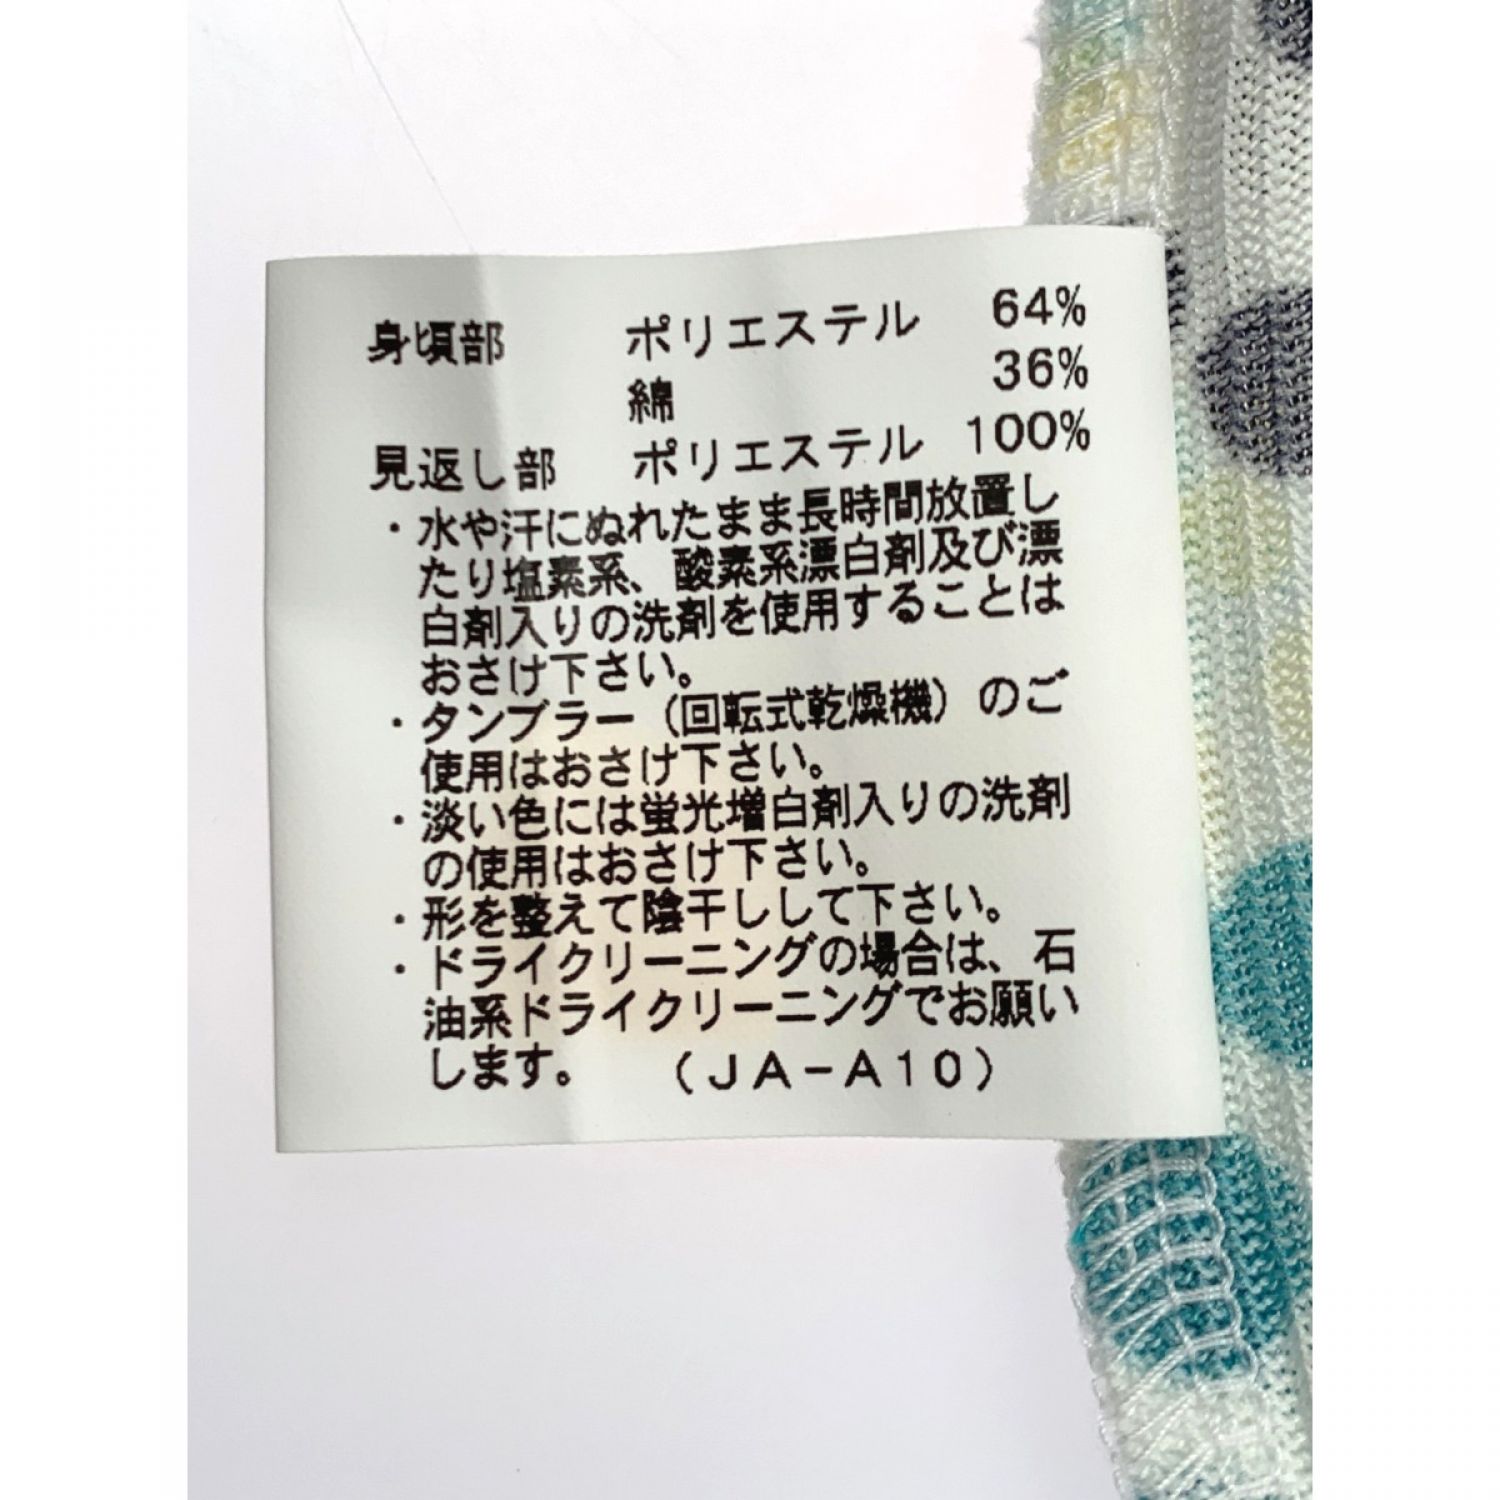 身頃部 ポリエステル 64%
綿 36%
見返し部 ポリエステル 100%
・水や汗にぬれたまま長時間放置し
たり塩素系、酸素系漂白剤及び漂
白剤入りの洗剤を使用することは
おさけ下さい。
・タンブラー（回転式乾燥機）のご
使用はおさけ下さい。
・淡い色には蛍光増白剤入りの洗剤
の使用はおさけ下さい。
・形を整えて陰干しして下さい。
・ドライクリーニングの場合は、石
油系ドライクリーニングでお願い
します。 （JA-A10）